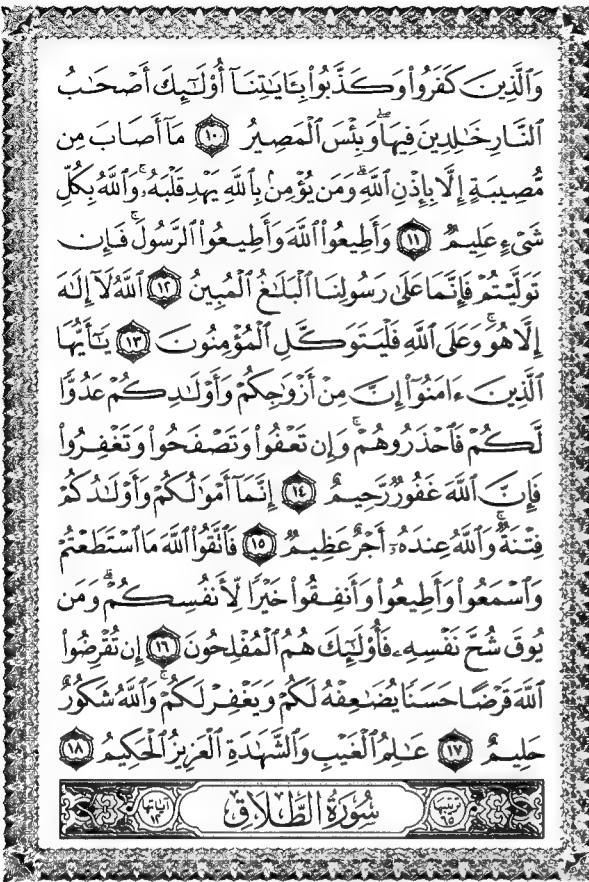 وَٱلَّذِينَ كَفَرُوا۟ وَكَذَّبُوا۟ بِـَٔايَـٰتِنَآ أُو۟لَـٰٓئِكَ أَصْحَـٰبُ
ٱلنَّارِ خَـٰلِدِينَ فِيهَا ۖ وَبِئْسَ ٱلْمَصِيرُ ١٠ مَآ أَصَابَ مِن
مُّصِيبَةٍ إِلَّا بِإِذْنِ ٱللَّهِ ۗ وَمَن يُؤْمِنۢ بِٱللَّهِ يَهْدِ قَلْبَهُۥ ۚ وَٱللَّهُ بِكُلِّ
شَىْءٍ عَلِيمٌ ١١ وَأَطِيعُوا۟ ٱللَّهَ وَأَطِيعُوا۟ ٱلرَّسُولَ ۚ فَإِن
تَوَلَّيْتُمْ فَإِنَّمَا عَلَىٰ رَسُولِنَا ٱلْبَلَـٰغُ ٱلْمُبِينُ ١٢ ٱللَّهُ لَآ إِلَـٰهَ
إِلَّا هُوَ ۚ وَعَلَى ٱللَّهِ فَلْيَتَوَكَّلِ ٱلْمُؤْمِنُونَ ١٣ يَـٰٓأَيُّهَا
ٱلَّذِينَ ءَامَنُوٓا۟ إِنَّ مِنْ أَزْوَٰجِكُمْ وَأَوْلَـٰدِكُمْ عَدُوًّا
لَّكُمْ فَٱحْذَرُوهُمْ ۚ وَإِن تَعْفُوا۟ وَتَصْفَحُوا۟ وَتَغْفِرُوا۟
فَإِنَّ ٱللَّهَ غَفُورٌ رَّحِيمٌ ١٤ إِنَّمَآ أَمْوَٰلُكُمْ وَأَوْلَـٰدُكُمْ
فِتْنَةٌ ۚ وَٱللَّهُ عِندَهُۥٓ أَجْرٌ عَظِيمٌ ١٥ فَٱتَّقُوا۟ ٱللَّهَ مَا ٱسْتَطَعْتُمْ
وَٱسْمَعُوا۟ وَأَطِيعُوا۟ وَأَنفِقُوا۟ خَيْرًا لِّأَنفُسِكُمْ ۗ وَمَن
يُوقَ شُحَّ نَفْسِهِۦ فَأُو۟لَـٰٓئِكَ هُمُ ٱلْمُفْلِحُونَ ١٦ إِن تُقْرِضُوا۟
ٱللَّهَ قَرْضًا حَسَنًا يُضَـٰعِفْهُ لَكُمْ وَيَغْفِرْ لَكُمْ ۚ وَٱللَّهُ شَكُورٌ
حَلِيمٌ ١٧ عَـٰلِمُ ٱلْغَيْبِ وَٱلشَّهَـٰدَةِ ٱلْعَزِيزُ ٱلْحَكِيمُ ١٨
سُورَةُ الطَّلَاقِ